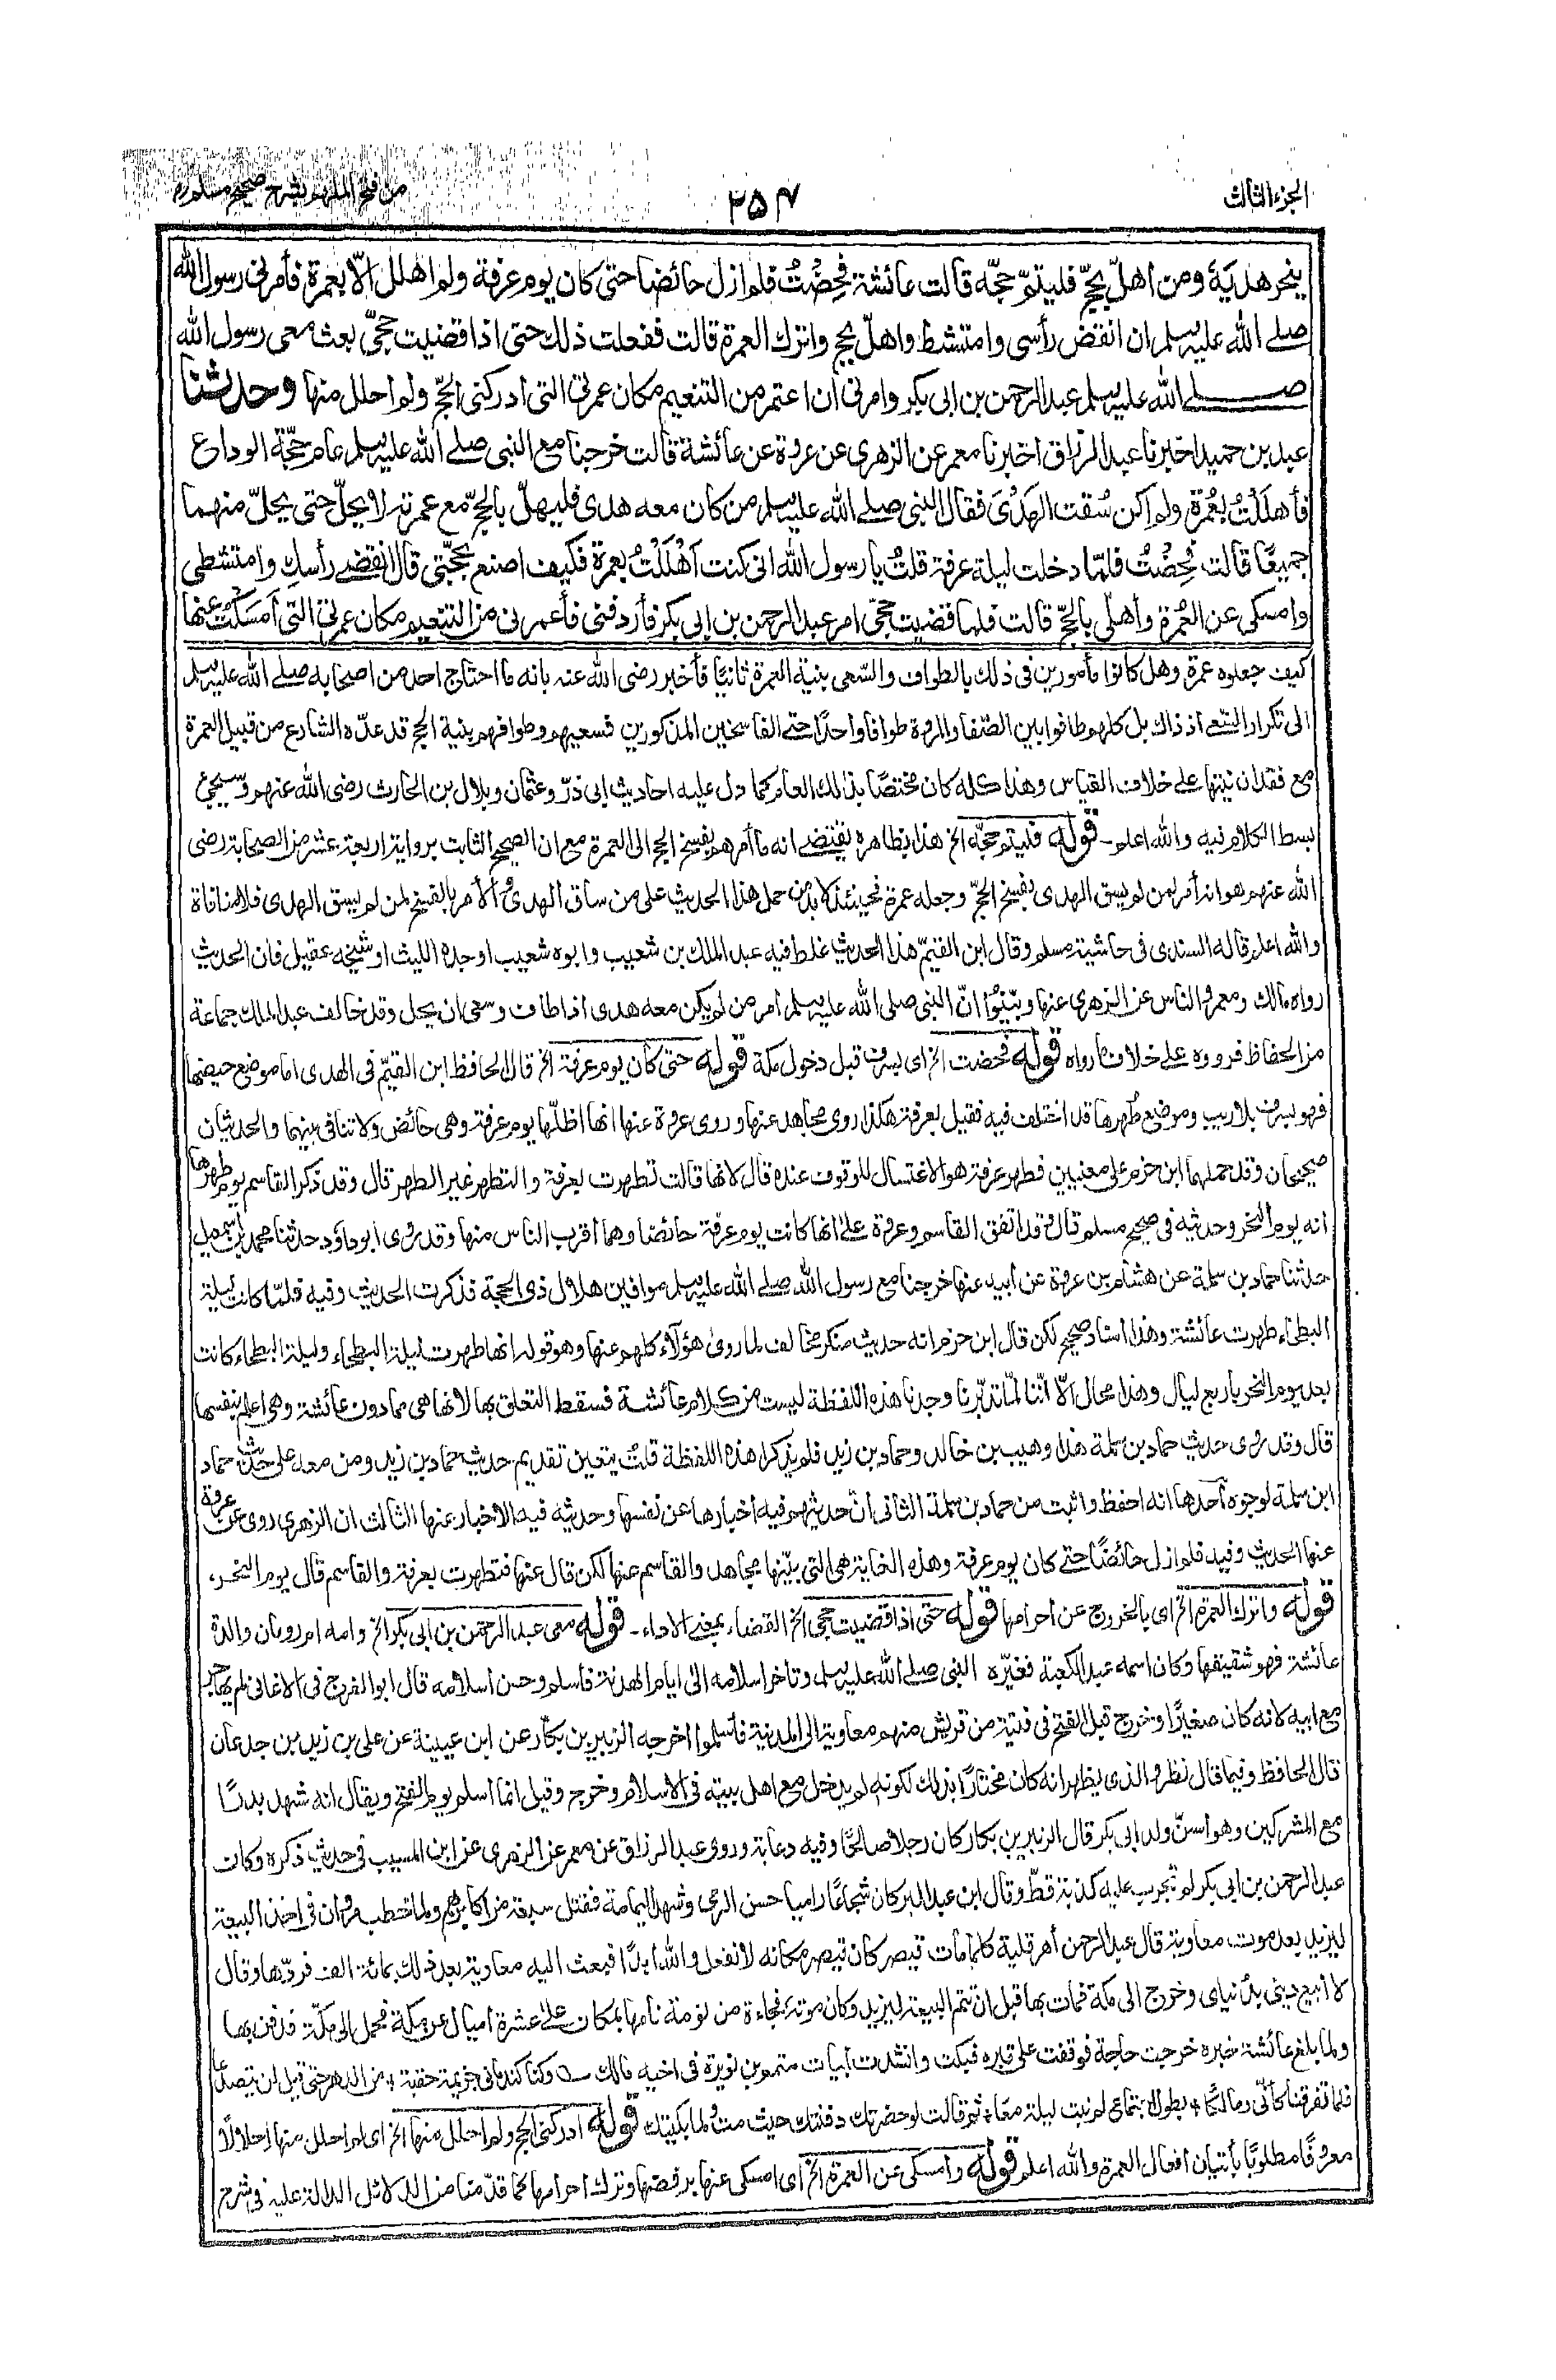 الجزء الثالث
۲۵۴
من فتح الملهم بشرح صحيح مسلم
ينحر هديَهُ ومن اهلّ بحجّ فليتمّ حجّه قالت عائشة فحِضْتُ فلم ازل حائضا حتى كان يوم عرفة ولم اهلل الّا بعمرة فأمرنى رسول الله
صلے الله عليہ وسلم ان انقض رأسى وامتشط واهلّ بحج واترك العمرة قالت ففعلت ذلك حتى اذا قضيت حجّى بعث معى رسول الله
صلے الله عليہ وسلم عبد الرحمن بن ابى بكر وامرنى ان اعتمر من التنعيم مكان عمرتى التى ادركنى الحجّ ولم احلل منها وحدثنا
عبد بن حميد اخبرنا عبد الرزاق اخبرنا معمر عن الزهرى عن عروة عن عائشة قالت خرجنا مع النبى صلے الله عليہ وسلم عام حجّة الوداع
فأهلَلْتُ بعُمرة ولم اكن سُقت الهَدْىَ فقال النبى صلے الله عليہ وسلم من كان معه هدى فليهلّ بالحجّ مع عمرته لا يحلّ حتى يحلّ منهما
جميعًا قالت فحِضْتُ فلمّا دخلت ليلة عرفة قلتُ يا رسول الله انى كنت اَهْلَلْتُ بعمرة فكيف اصنع بحجّتى قال انقضے رأسك وامتشطى
وامسكى عن العُمرة وأهلّى بالحجّ قالت فلما قضيت حجّى امر عبد الرحمن بن ابى بكر فأردفنى فأعمرنى من التنعيم مكان عمرتى التى أمسَكْتُ عنها
كيف جعلوه عمرة وهل كانوا مأمورين فى ذلك بالطواف والسّعى بنية العمرة ثانيًا فأخبر رضى الله عنه بانه ما احتاج احد من اصحابه صلے الله عليہ وسلم
الى تكرار السّعے اذ ذاك بل كلهم طافوا بين الصّفا والمروة طوافا واحدًا حتے الفاسخين المذكورين فسعيهم وطوافهم بنية الحج قد عدّه الشارع من قبيل العمرة
مع فقدان نيتها علے خلاف القياس وهذا كله كان مختصًا بذلك العام كما دل عليه احاديث ابى ذرّ وعثمان وبلال بن الحارث رضى الله عنهم وسيجئ
بسط الكلام فيه والله اعلم۔ قوله فليتم حجّه الخ هذا بظاهره يقتضے انه ما أمرهم بفسخ الحج الى العمرة مع ان الصحيح الثابت برواية اربعة عشر من الصحابة رضى
الله عنهم هو انه أمر لمن لم يسق الهدى بفسخ الحجّ وجعله عمرة فحينئذ لا بد من حمل هذا الحديث على من ساق الهدى والأمر بالفسخ لمن لم يسق الهدى فلا منافاة
والله اعلم قاله السندى فى حاشية مسلم وقال ابن القيّم هذا الحديث غلط فيه عبد الملك بن شعيب وابوه شعيب او جده الليث او شيخه عقيل فان الحديث
رواه مالك ومعمر والناس عن الزهرى عنها وبيّنوا انّ النبى صلى الله عليہ وسلم أمر من لم يكن معه هدى اذا طاف وسعى ان يحل وقد خالف عبد الملك جماعة
من الحفاظ فرووه علے خلاف ما رواه قوله فحضت الخ اى بسرف قبل دخول مكة قوله حتى كان يوم عرفة الخ قال الحافظ ابن القيّم فى الهدى اما موضع حيضها
فهو بسرف بلا ريب وموضع طهرها قد اختلف فيه فقيل بعرفة هكذا روى مجاهد عنها وروى عروة عنها انها اظلّها يوم عرفة وهى حائض ولا تنافى بينهما والحديثان
صحيحان وقد حملهما ابن حزم على معنيين فطهر عرفة هو الاغتسال للوقوف عنده قال لانها قالت تطهرت بعرفة والتطهر غير الطهر قال وقد ذكر القاسم يوم طهرها
انه يوم النحر وحديثه فى صحيح مسلم قال وقد اتفق القاسم وعروة علے انها كانت يوم عرفة حائضا وهما أقرب الناس منها وقد روى ابو داؤد حدثنا محمد بن اسمعيل
حدثنا حماد بن سلمة عن هشام بن عروة عن ابيه عنها خرجنا مع رسول الله صلے الله عليہ وسلم موافين هلال ذى الحجة فذكرت الحديث وفيه فلمّا كانت ليلة
البطحاء طهرت عائشة وهذا اسناد صحيح لكن قال ابن حزم انه حديث منكر مخالف لما روى هؤلاء كلهم عنها وهو قوله انها طهرت ليلة البطحاء وليلة البطحاء كانت
بعد يوم النحر باربع ليال وهذا محال الّا أنّنا لمّا تدبّرنا وجدنا هذه اللفظة ليست من كلام عائشة فسقط التعلق بها لانها هى مما دون عائشة وهى اعلم بنفسها
قال وقد روى حديث حماد بن سلمة هذا وهيب بن خالد وحماد بن زيد فلم يذكرا هذه اللفظة قلتُ يتعين تقديم حديث حماد بن زيد ومن معه على حديث حماد
ابن سلمة لوجوه أحدها انه احفظ واثبت من حماد بن سلمة الثانى أن حديثهم فيه أخبارها عن نفسها وحديثه فيه الاخبار عنها الثالث ان الزهرى روى عن عروة
عنها الحديث وفيه فلم ازل حائضًا حتے كان يوم عرفة وهذه الغاية هى التى بيّنها مجاهد والقاسم عنها لكن قال عنها فتطهرت بعرفة والقاسم قال يوم النحر،
قوله واترك العمرة الخ اى بالخروج عن احرامها قوله حتى اذا قضيت حجى الخ القضاء بمعنے الاداء۔ قوله معى عبد الرحمن بن ابى بكر الخ وامه ام رومان والدة
عائشة فهو شقيقها وكان اسمه عبد الكعبة فغيّره النبى صلے الله عليہ وسلم وتأخر اسلامه الى ايام الهدنة فاسلم وحسن اسلامه قال ابو الفرج فى الاغانى لم يهاجر
مع ابيه لانه كان صغيرًا وخرج قبل الفتح فى فتية من قريش منهم معاوية الى المدينة فأسلموا اخرجه الزبير بن بكّار عن ابن عيينة عن على بن زيد بن جدعان
قال الحافظ وفيما قال نظر والذى يظهر انه كان مختارًا بذلك لكونه لم يدخل مع اهل بيته فى الاسلام وخرج وقيل انما أسلم يوم الفتح ويقال انه شهد بدرًا
مع المشركين وهو اسنّ ولد ابى بكر قال الزبير بن بكار كان رجلا صالحًا وفيه دعابة وروى عبد الرزاق عن معمر عن الزهرى عن ابن المسيب فى حديث ذكره وكان
عبد الرحمن بن ابى بكر لم تجرب عليه كذبة قطّ وقال ابن عبد البر كان شجاعًا راميا حسن الرمى وشهد اليمامة فقتل سبعة من اكابرهم ولما خطب مروان فى اخذ البيعة
ليزيد بعد موت معاوية قال عبد الرحمن أهرقلية كلما مات قيصر كان قيصر مكانه لا نفعل والله ابدًا فبعث اليه معاوية بعد ذلك بمائة الف فردّها وقال
لا أبيع دينى بدُنياى وخرج الى مكة فمات بها قبل ان تتم البيعة ليزيد وكان موته فجاءة من نومة نامها بمكان علے عشرة أميال عن مكة فحمل الى مكّة فدفن بها
ولما بلغ عائشة خبره خرجت حاجة فوقفت على قبره فبكت وانشدت أبيات متمم بن نويرة فى اخيه مالك ؎ وكنا كندمانى جزيمة حقبة ٭ من الدهر حتى قيل لن يتصدعا
فلما تفرقنا كأنّى ومالكًا ٭ بطول اجتماع لم نبت ليلة معًا ٭ ثم قالت لو حضرتك دفنتك حيث مت ولما بكيتك قوله ادركنى الحج ولم احلل منها الخ اى لم احلل منها احلالًا
معروفًا مطلوبًا بأتيان أفعال العمرة والله اعلم قوله وأمسكى عن العمرة الخ اى امسكى عنها برفضها وترك احرامها كما قدّمنا من الدلائل الدالة عليه فى شرح